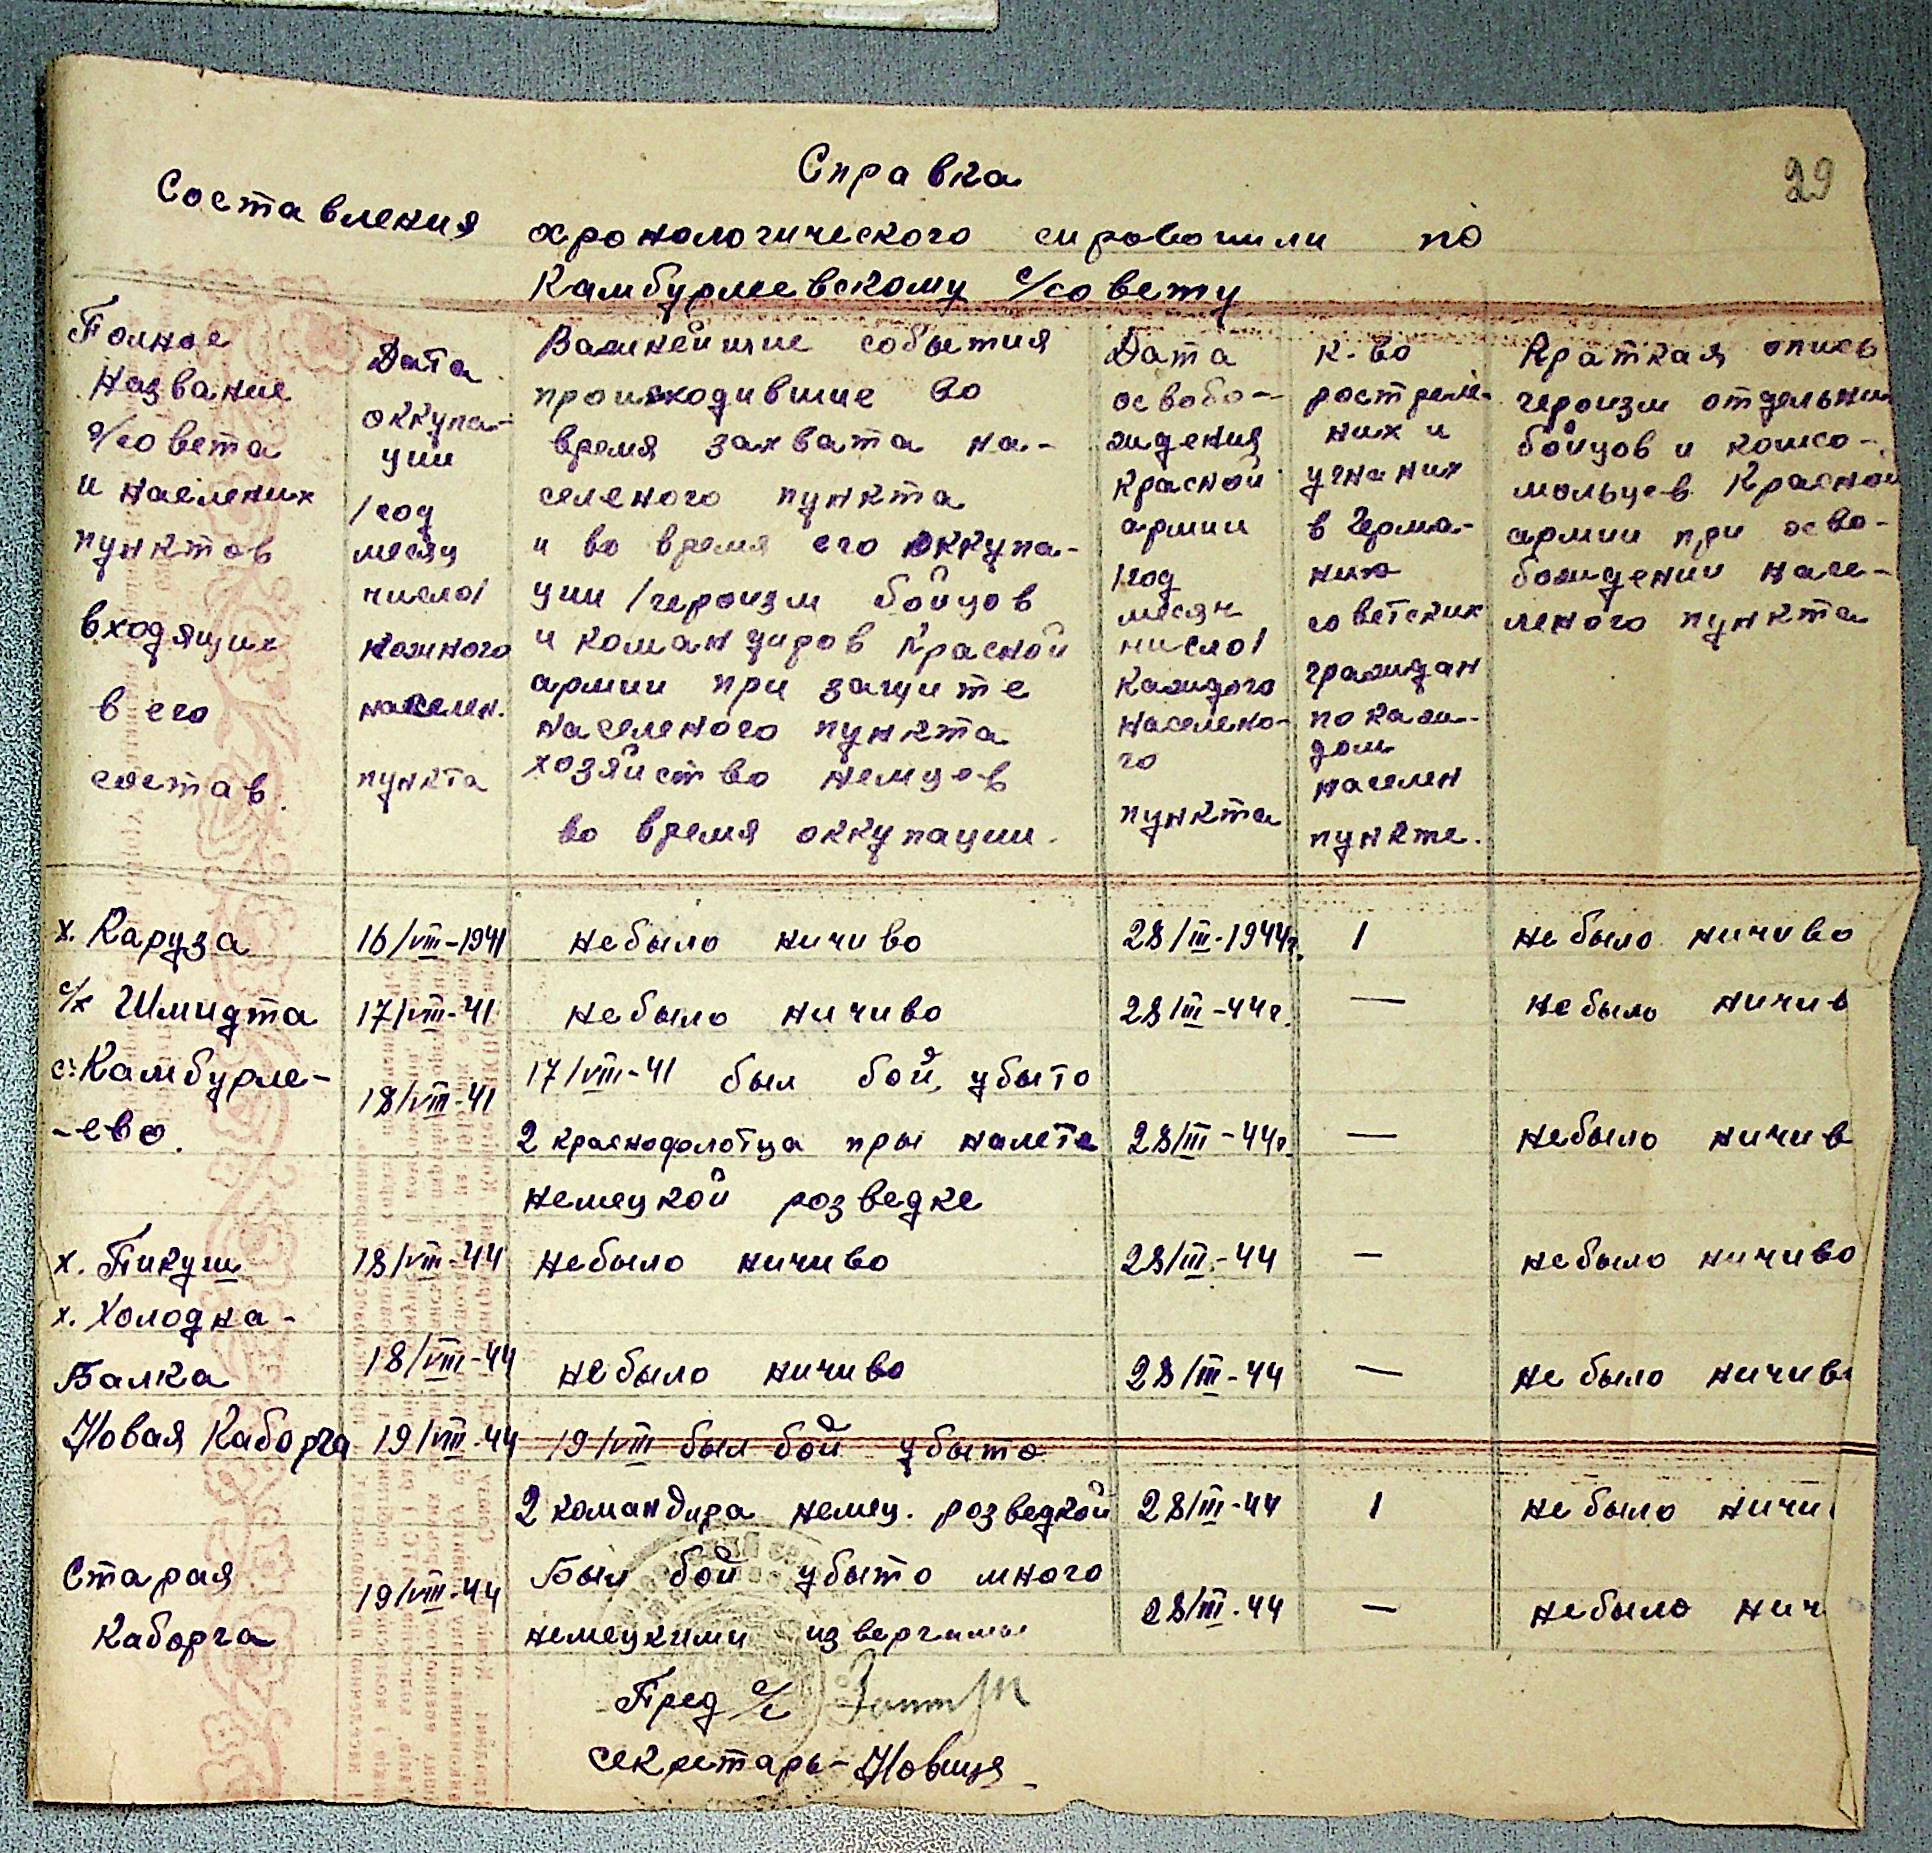 29
Справка
Составления хронологического
по
Камбурлиевскому с/совету
Полное
название
с/совета
и населених
пунктов
входящих
в его
состав.
Дата
оккупа-
ции
/год
месяц
число/
кожного
населен.
пункта
Важнейшие события
происходившие во
время захвата на-
селеного пункта
и во время его оккупа-
ции /героизм бойцов
и командиров Красной
армии при защите
населеного пункта
хозяйство немцев
во время оккупации.
Дата
освобо-
ждения
Красной
армии
/год
месяч
число/
каждого
населено-
го
пункта
к-во
ростреле-
них и
угнаних
в Герма-
нию
советских
граждан
по каж-
дом
населен
пункте.
Краткая опись
героизм отдельних
бойцов и комсо-
мольцев Красной
армии при осво-
бождении насе-
леного пункта
х. Каруза 16/VIII-1941 небыло ничиво 28/III-1944г. 1 небыло ничиво
с/х Шмидта 17/VIII-41 небыло ничиво 28/III-44г. — небыло ничив
с. Камбурле- 18/VIII-41 17/VIII-41 был бой, убыто
-ево. 2 краснофлотца при налете 28/III-44г. — небыло ничив
немецкой розведке
х. Пикуш 18/VIII-44 небыло ничиво 28/III-44 — небыло ничиво
х. Холодна-
Балка 18/VIII-44 небыло ничиво 28/III-44 — небыло ничиво
Новая Каборга 19/VIII-44 19/VIII был бой убыто
2 командира немец. розведкой 28/III-44 1 небыло ничи
Старая 19/VIII-44 Был бой убыто много
Каборга немецкими извергами 28/III-44 — небыло нич
Пред с/с
секретарь-